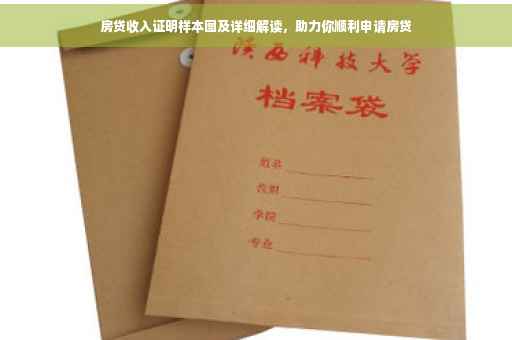 房贷收入证明样本图及详细解读，助力你顺利申请房贷
陕西科技大学
档案袋
学院
专业